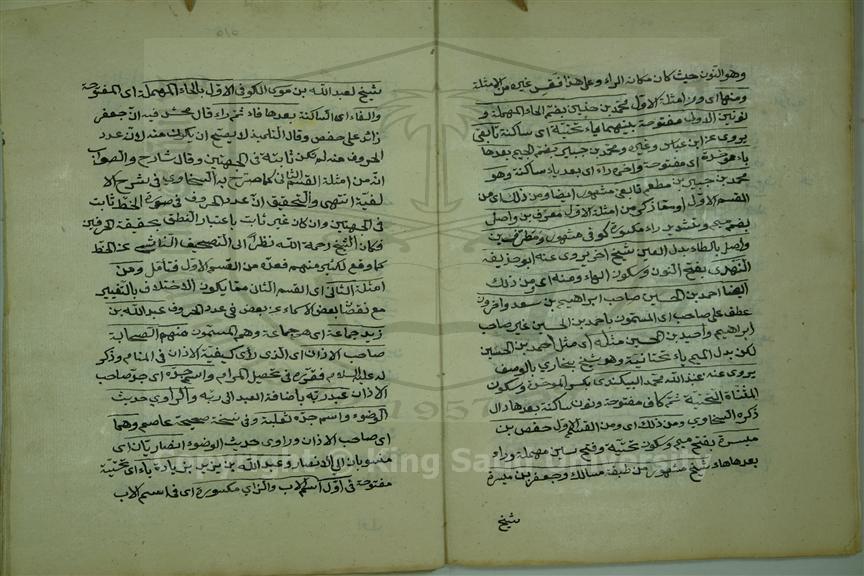 وهو النون حيث كان مكان الراء وعلى هذا فقس غيره من الامثلة
ومنها اى ومن امثلة الاول محمد بن حنين بضم الحاء المهملة و
نونين الاولى مفتوحة بينهما ياء تحتية اى ساكنة تابعى
يروى عن ابن عباس وغيره ومحمد بن جبير بضم الجيم بعدها
باء موحدة اى مفتوحة واخره راء اى بعد ياء ساكنة وهو
محمد بن جبير بن مطعم تابعى مشهور ايضا ومن ذلك اى من
القسم الاول او مما ذكر من امثلة الاول معرف بن واصل
بضم ميم وتشديد راء مكسورة كوفى مشهور ومطرف بن
واصل بالطاء بدل العين شيخ اخر يروى عنه ابو حذيفة
النهدى بفتح النون وسكون الهاء ومنه اى ومن ذلك
ايضا احمد بن الحسين صاحب ابراهيم بن سعد واخرون
عطف على صاحب اى المسمون باحمد بن الحسين غير صاحب
ابراهيم واحيد بن الحسين مثله اى مثل احمد بن الحسين
لكن بدل الميم ياء تحتانية وهو شيخ بخارى بالوصف
يروى عنه عبد الله بن محمد البيكندى بكسر الموحدة وسكون
المثناة التحتية ثم كاف مفتوحة ونون ساكنة بعدها دال
ذكره السخاوى ومن ذلك اى ومن القسم الاول حفص بن
ميسرة بفتح ميم وسكون تحتية وفتح سين مهملة وراء
بعدها هاء شيخ مشهور من طبقة مالك وجعفر بن ميسرة
شيخ
شيخ لعبد الله بن موسى الكوفى الاول بالحاء المهملة اى المفتوحة
والفاء اى الساكنة بعدها فاء ثم راء قال محشد فيه ان جعفر
زائد على حفص وقال التلميذ لا يصح ان يكون منه لان عدد
الحروف هنا لم تكن ثابتة فى الجهتين وقال شارح والصواب
انه من امثلة القسم الثانى كما صرح به السخاوى فى شرح الا
لفية انتهى والتحقيق ان عدد الحروف فى صورة الخط ثابت
فى الجهتين وان كان غير ثابت باعتبار النطق بحقيقة الحرفين
فكان الشيخ رحمه الله نظر الى التصحيف الناشئ عن الخط
كما وقع لكثير منهم فعده من القسم الاول فتأمل ومن
امثلة الثانى اى القسم الثانى مما يكون الاختلاف بالتغيير
مع نقصان بعض الاسماء عن بعض فى عدد الحروف عبد الله بن
زيد جماعة اى هم جماعة وهم المسمون منهم فى الصحابة
صاحب الاذان اى الذى رأى كيفية الاذان فى المنام وذكر
له عليه السلام فقرره فى تحصيل المرام واسم جده اى جد صاحب
الاذان عبد ربه باضافة العبد الى ربه والراوى حديث
الوضوء واسم جده ثعلبة وفى نسخة صحيحة عاصم وهما
اى صاحب الاذان وراوى حديث الوضوء انصاريان اى
منسوبان الى الانصار وعبد الله بن يزيد بزيادة ياء اى تحتية
مفتوحة فى اول اسم الاب والزاى مكسورة اى فى اسم الاب
1957
Copyright © King Saud University